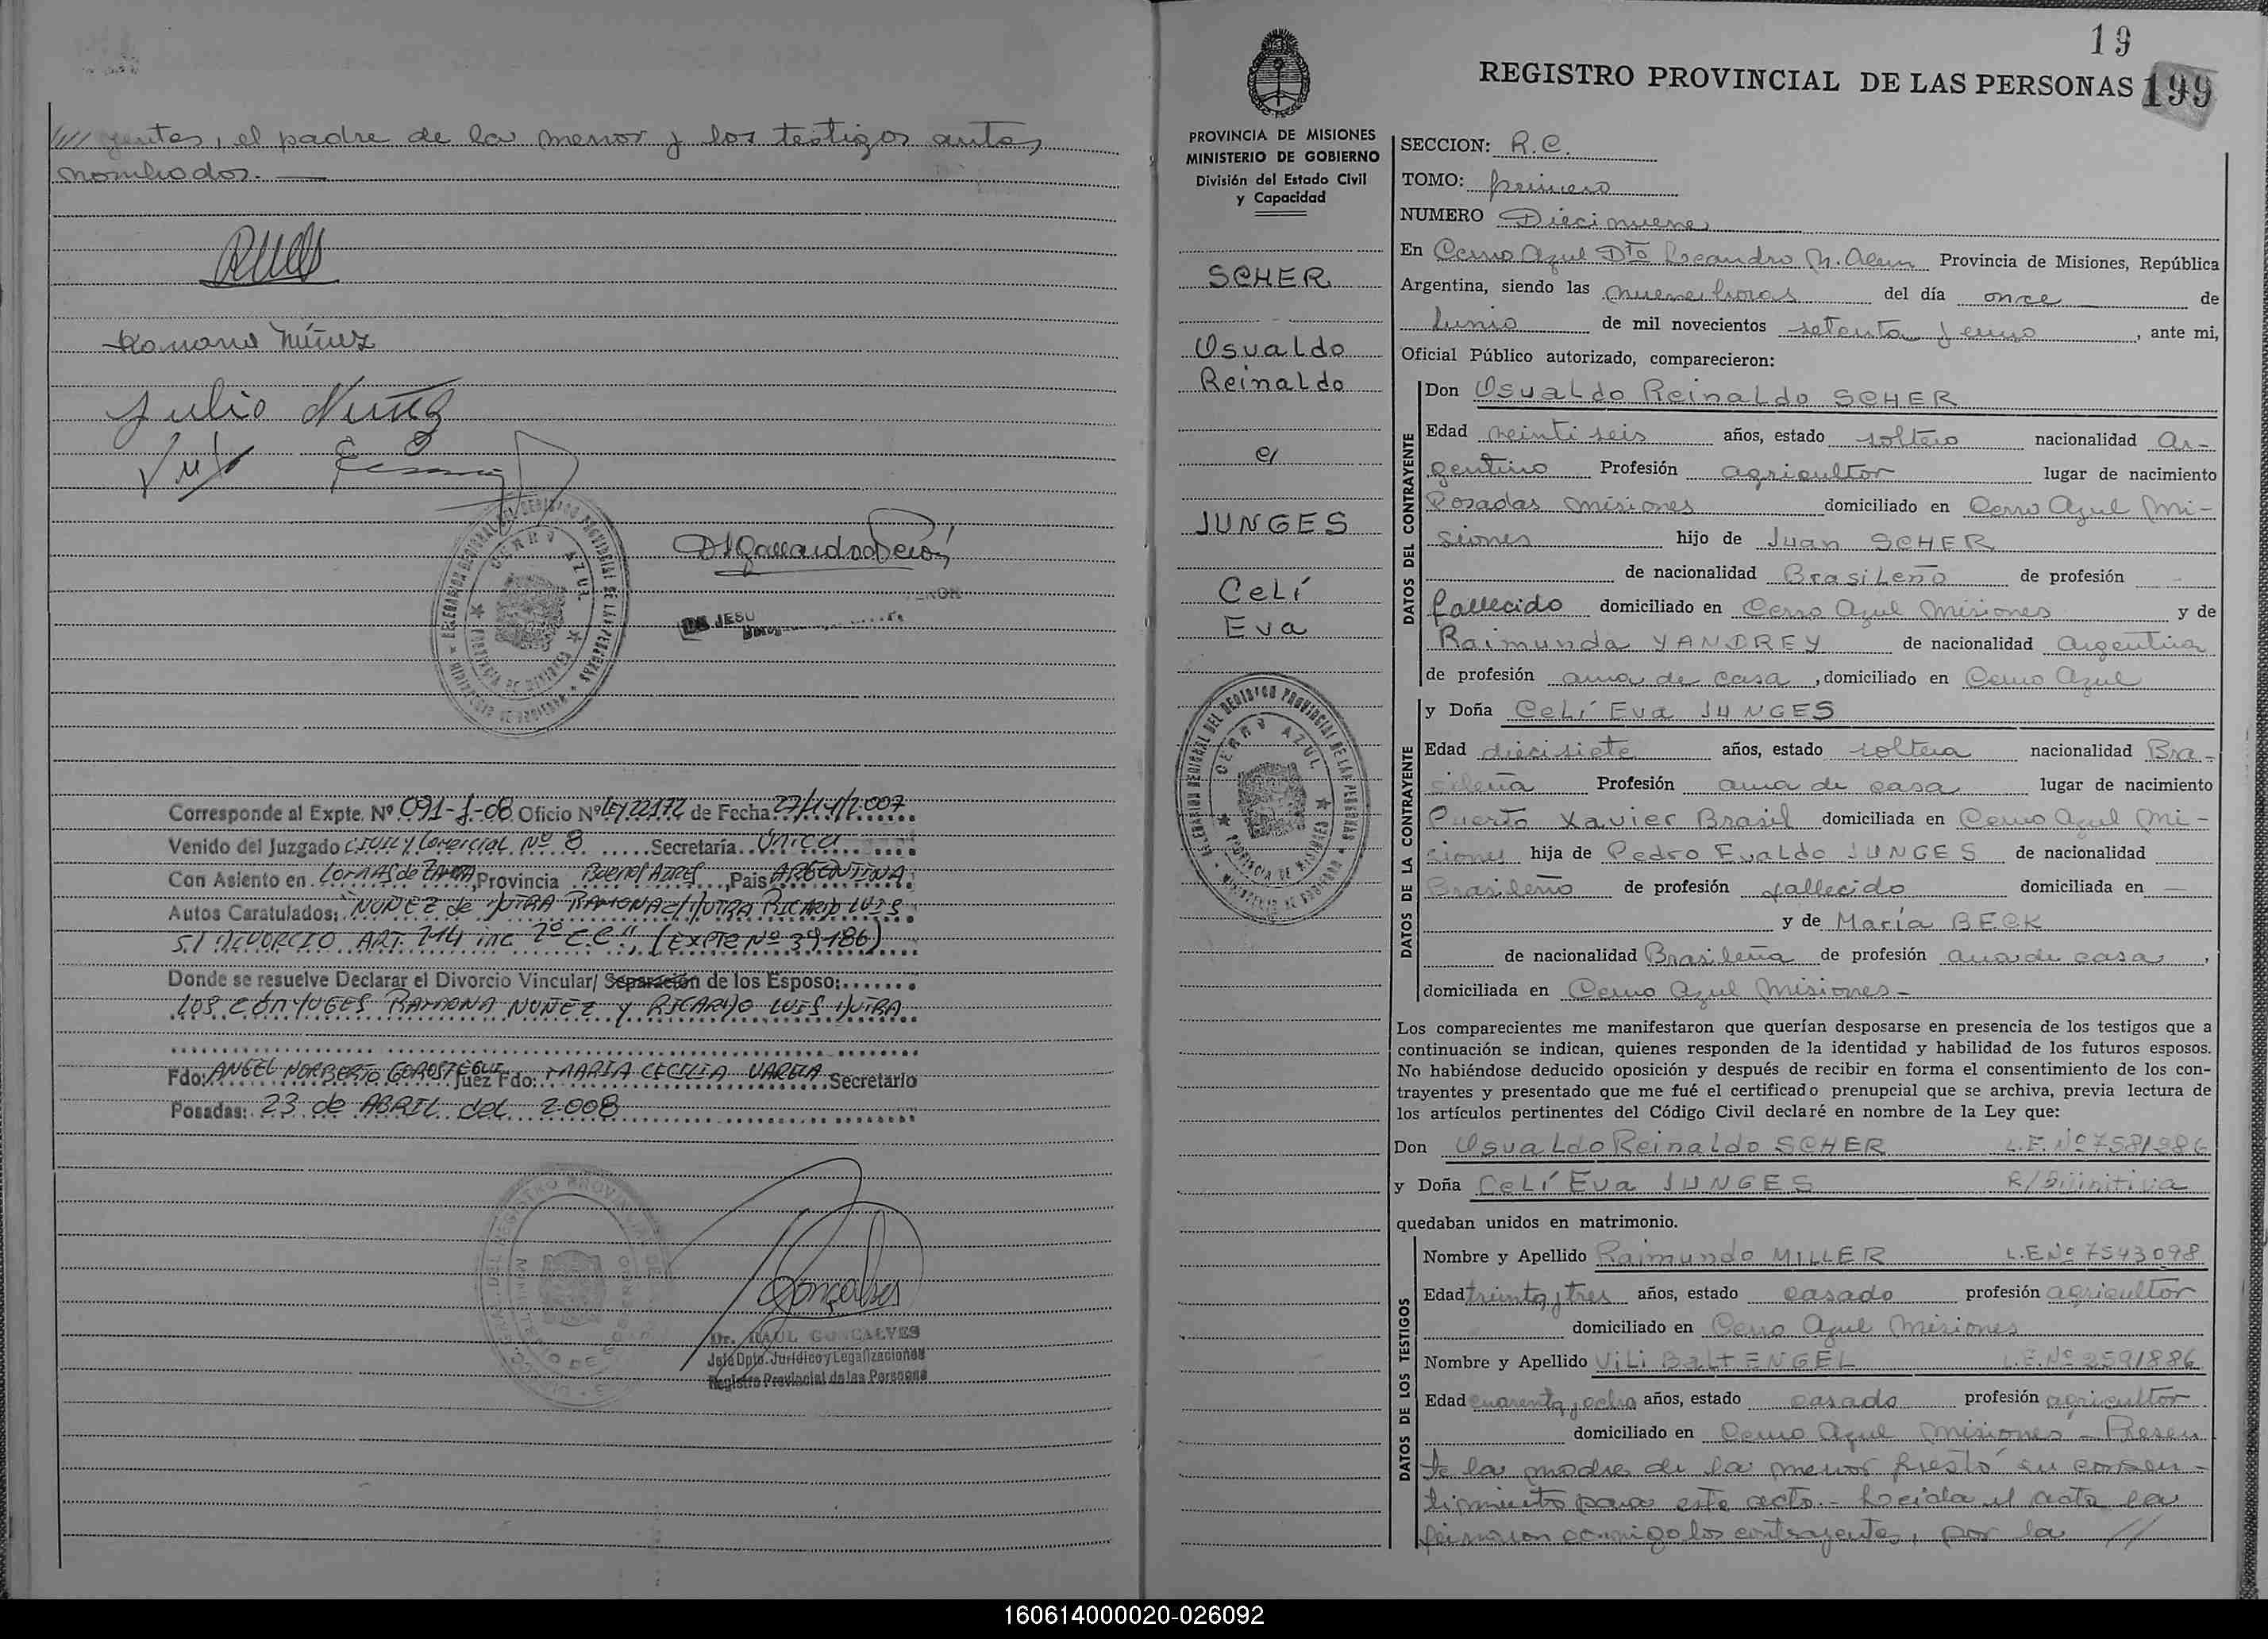 //// yentes, el padre de la menor y los testigos antes
nombrados. —
Ramona Núñez
Julio Nuñez
Corresponde al Expte. Nº 091-J-08 Oficio Nº LEY 22172 de Fecha 27/14/2.007
Venido del Juzgado CIVIL y Comercial Nº 8 Secretaría Única
Con Asiento en Lomas de Zamora, Provincia Buenos Aires, País ARGENTINA
Autos Caratulados: "NUÑEZ de DUTRA RAMONA c/ DUTRA RICARDO LUIS
S/ DIVORCIO ART. 214 inc 2º C.C.", (EXPTE Nº 39186)
Donde se resuelve Declarar el Divorcio Vincular/ Separación de los Esposo:
LOS CÓNYUGES RAMONA NUÑEZ y RICARDO LUIS DUTRA
Fdo: ANGEL NORBERTO GOROSTEGUI Juez Fdo: MARIA CECILIA VARELA Secretario
Posadas: 23 de ABRIL del 2.008
Dr. RAUL GONCALVES
Jefe Dpto. Jurídico y Legalizaciones
Registro Provincial de las Personas
19
REGISTRO PROVINCIAL DE LAS PERSONAS 199
PROVINCIA DE MISIONES
MINISTERIO DE GOBIERNO
División del Estado Civil
y Capacidad
SCHER
Osvaldo
Reinaldo
c/
JUNGES
Celí
Eva
DELEGACION REGIONAL DEL REGISTRO PROVINCIAL DE LAS PERSONAS
CERRO AZUL
PROVINCIA DE MISIONES
SECCION: R.C.
TOMO: primero
NUMERO Diecinueve
En Cerro Azul Dto Leandro N. Alem Provincia de Misiones, República
Argentina, siendo las nueve horas del día once de
Junio de mil novecientos setenta y uno, ante mi,
Oficial Público autorizado, comparecieron:
DATOS DEL CONTRAYENTE
Don Osvaldo Reinaldo SCHER
Edad veinti seis años, estado soltero nacionalidad Ar-
gentino Profesión agricultor lugar de nacimiento
Posadas Misiones domiciliado en Cerro Azul Mi-
siones hijo de Juan SCHER
de nacionalidad Brasileño de profesión
fallecido domiciliado en Cerro Azul Misiones y de
Raimunda YANDREY de nacionalidad Argentina
de profesión ama de casa, domiciliado en Cerro Azul
DATOS DE LA CONTRAYENTE
y Doña Celí Eva JUNGES
Edad diecisiete años, estado soltera nacionalidad Bra-
sileña Profesión ama de casa lugar de nacimiento
Puerto Xavier Brasil domiciliada en Cerro Azul Mi-
siones hija de Pedro Evaldo JUNGES de nacionalidad
Brasileño de profesión fallecido domiciliada en —
y de María BECK
de nacionalidad Brasileña de profesión ama de casa,
domiciliada en Cerro Azul Misiones -
Los comparecientes me manifestaron que querían desposarse en presencia de los testigos que a
continuación se indican, quienes responden de la identidad y habilidad de los futuros esposos.
No habiéndose deducido oposición y después de recibir en forma el consentimiento de los con-
trayentes y presentado que me fué el certificado prenupcial que se archiva, previa lectura de
los artículos pertinentes del Código Civil declaré en nombre de la Ley que:
Don Osvaldo Reinaldo SCHER L.E. Nº 7581286
y Doña Celí Eva JUNGES
quedaban unidos en matrimonio.
DATOS DE LOS TESTIGOS
Nombre y Apellido Raimundo MILLER L.E Nº 7543098
Edad treinta y tres años, estado casado profesión agricultor
domiciliado en Cerro Azul Misiones
Nombre y Apellido Vili Balt ENGEL L.E. Nº 2591886
Edad cuarenta y ocho años, estado casado profesión agricultor
domiciliado en Cerro Azul Misiones - Presen
te la madre de la menor prestó su consen-
timiento para este acto.- Leida el acta la
firmaron conmigo los contrayentes, por la //
160614000020-026092